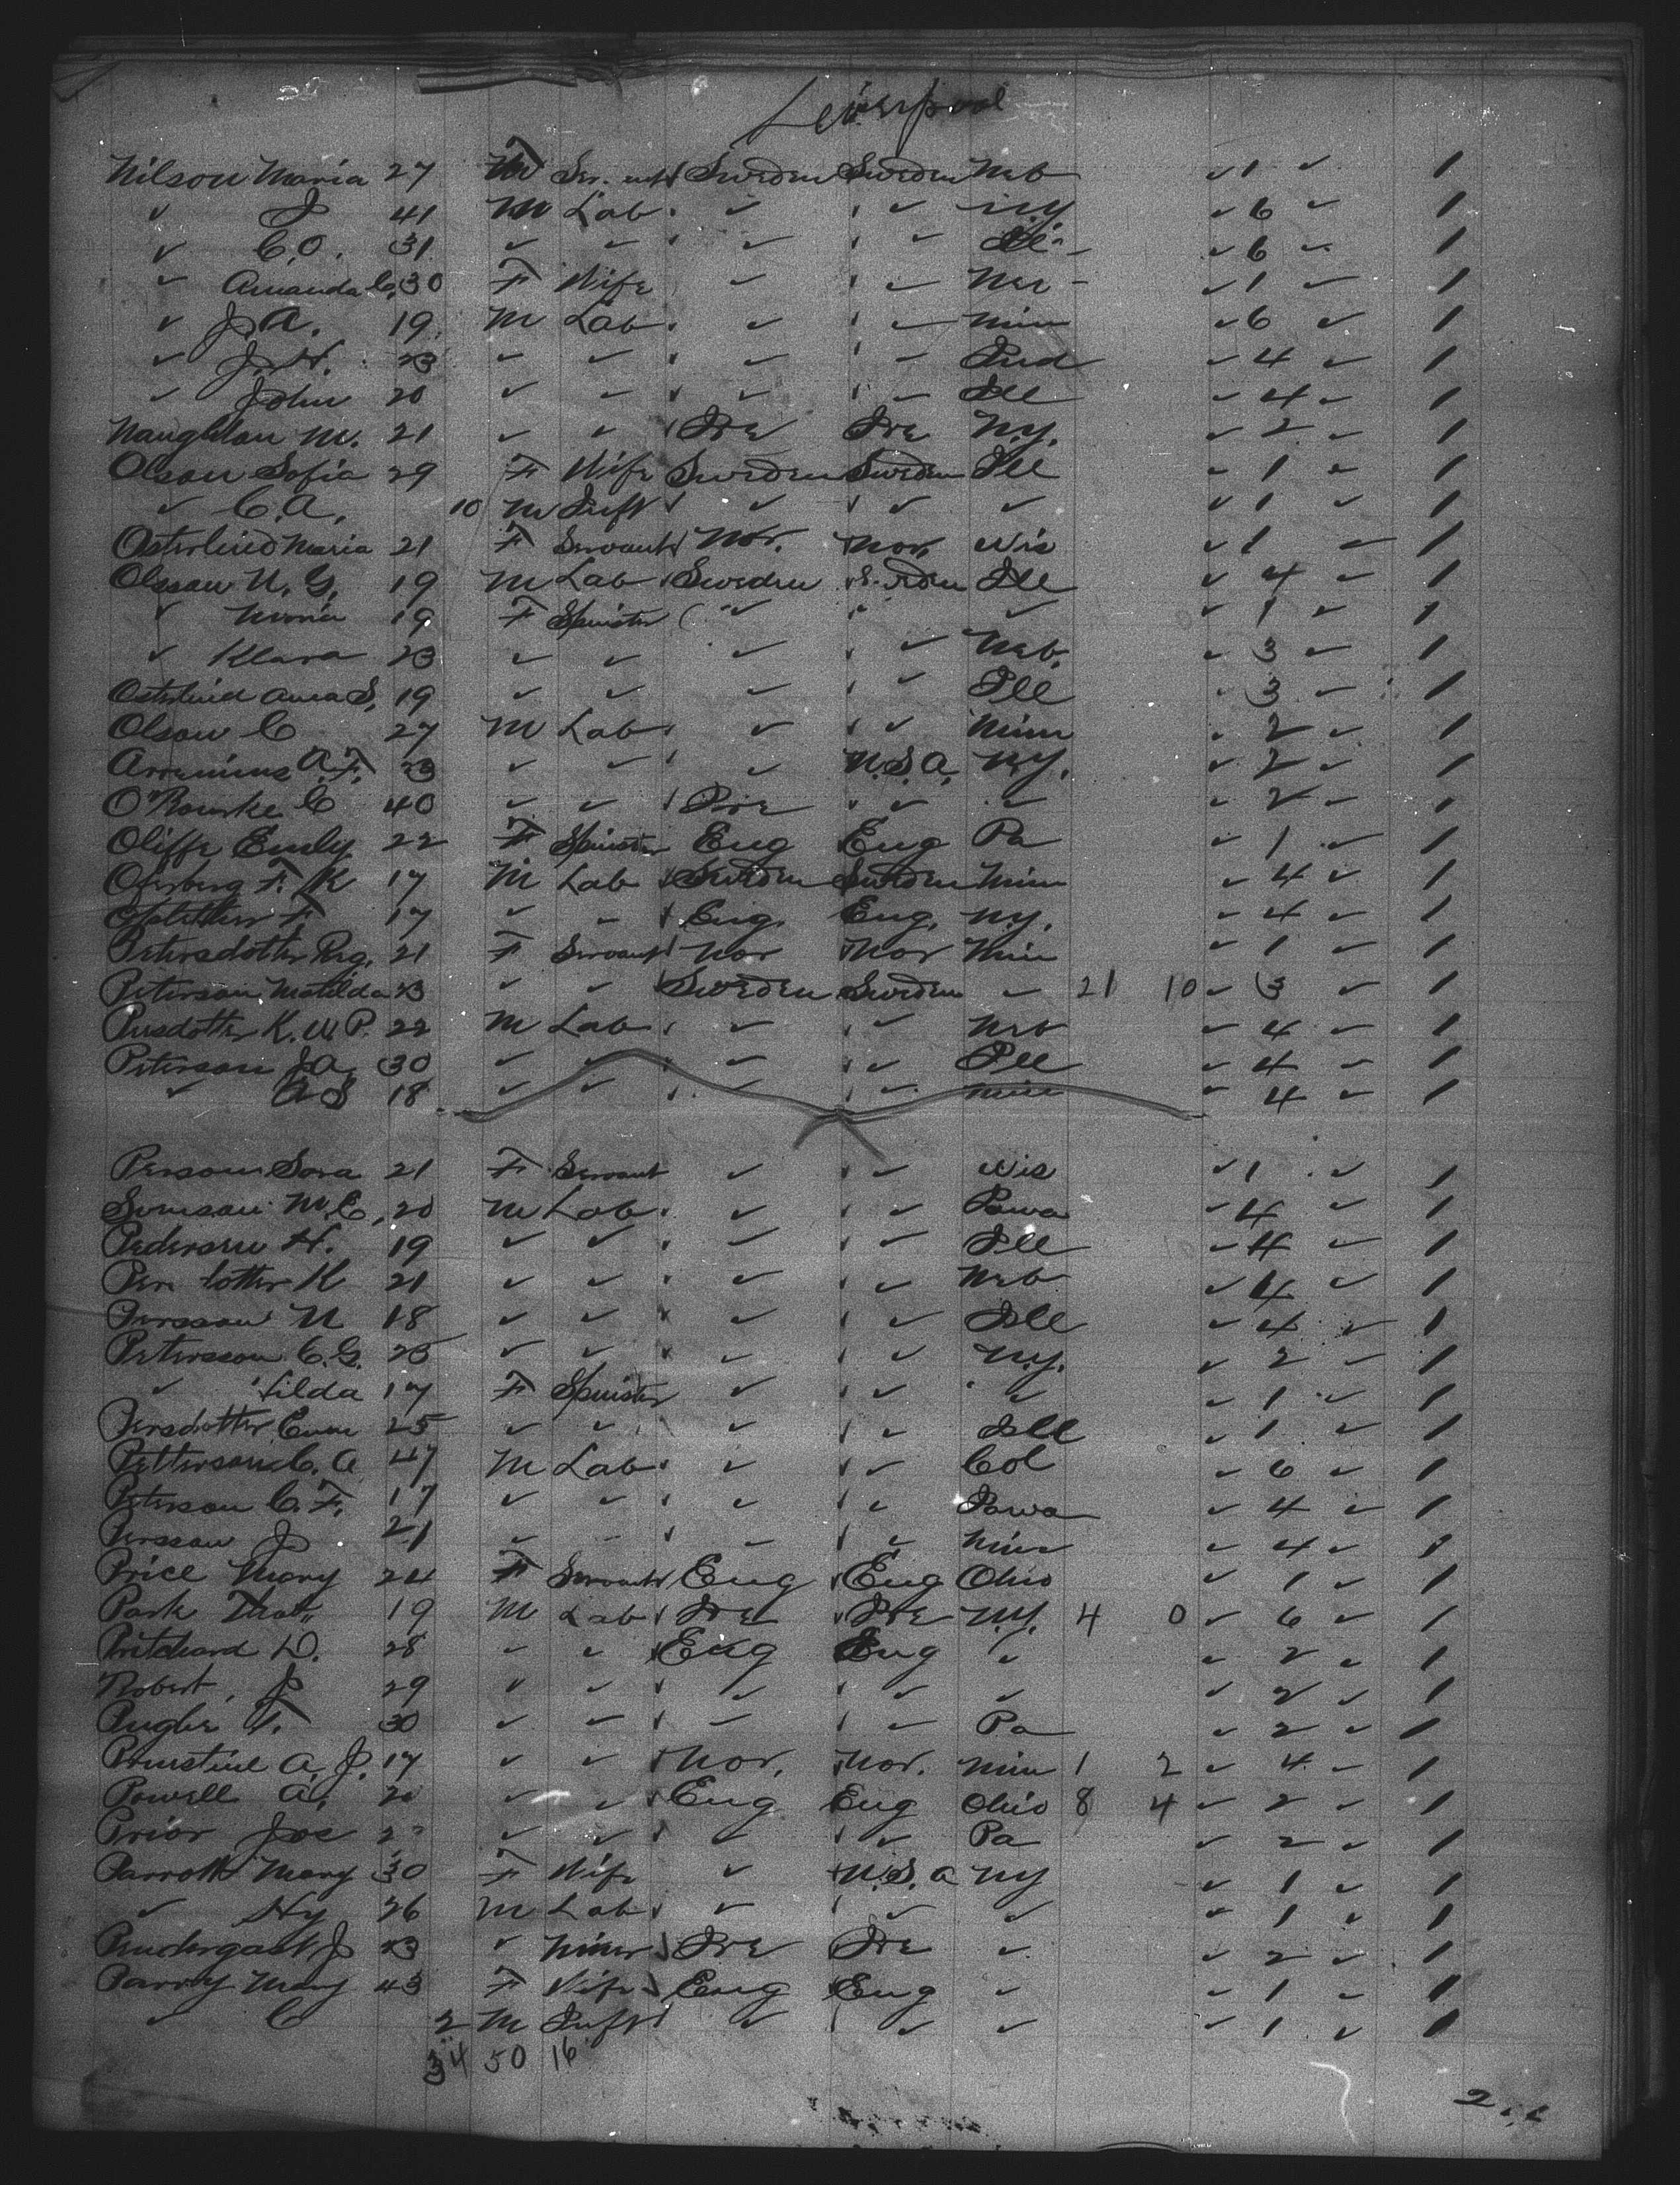 Leverpool
Nilson Maria 27 F Ser. ✓ Sweden Sweden Neb ✓ 1 ✓ 1
✓ J 41 M Lab ✓ ✓ N.Y ✓ 6 ✓ 1
✓ C.O. 31 ✓ ✓ ✓ ✓ Ill ✓ 6 ✓ 1
✓ Amanda C. 30 F Wife ✓ ✓ ✓ 1 ✓ 1
✓ J.A. 19 M Lab ✓ ✓ Min ✓ 6 ✓ 1
✓ J.H. 23 ✓ ✓ ✓ ✓ Ind ✓ 4 ✓ 1
✓ John 20 ✓ ✓ ✓ ✓ Ill ✓ 4 ✓ 1
Naughton M. 21 ✓ ✓ Ire Ire N.Y. ✓ 2 ✓ 1
Olson Sofia 29 F Wife Sweden Sweden Ill ✓ 1 ✓ 1
✓ C.A. 10 M Inft ✓ ✓ ✓ ✓ 1 ✓ 1
Osterlind Maria 21 F Servant Nor. Nor. Wis ✓ 1 ✓ 1
Olsson N. G. 19 M Lab Sweden Sweden Ill ✓ 4 ✓ 1
✓ 19 F Spinster ✓ ✓ ✓ ✓ 1 ✓ 1
✓ Klara 23 ✓ ✓ ✓ ✓ Neb. ✓ 3 ✓ 1
Osterlind Anna S. 19 ✓ ✓ ✓ ✓ Ill ✓ 3 ✓ 1
Olson C 27 M Lab ✓ ✓ Minn ✓ 2 ✓ 1
Arrenius A.F. 23 ✓ ✓ ✓ U.S.A. N.Y. ✓ 2 ✓ 1
O'Rourke C 40 ✓ ✓ Ire ✓ ✓ ✓ 2 ✓ 1
Oliffe Emily 22 F Spinster Eng Eng Pa ✓ 1 ✓ 1
F. K 17 M Lab Sweden Sweden Minn ✓ 4 ✓ 1
F 17 ✓ ✓ Eng. Eng. N.Y. ✓ 4 ✓ 1
Petersdotter Reg. 21 F Servant Nor Nor Min ✓ 1 ✓ 1
Peterson Matilda 23 ✓ ✓ Sweden Sweden ✓ 21 10 ✓ 3 ✓ 1
K. W. P. 22 M Lab ✓ ✓ Neb ✓ 4 ✓ 1
Peterson J.A. 30 ✓ ✓ ✓ ✓ Ill ✓ 4 ✓ 1
✓ A S 18 ✓ ✓ ✓ ✓ Min ✓ 4 ✓ 1
Person Sora 21 F Servant ✓ ✓ Wis ✓ 1 ✓ 1
M.C. 20 M Lab ✓ ✓ Iowa ✓ 4 ✓ 1
Pedersen H. 19 ✓ ✓ ✓ ✓ Ill ✓ 4 ✓ 1
Per dotter K 21 ✓ ✓ ✓ ✓ Neb ✓ 4 ✓ 1
Persson N 18 ✓ ✓ ✓ ✓ Ill ✓ 4 ✓ 1
Petersson C.G. 25 ✓ ✓ ✓ ✓ N.Y. ✓ 2 ✓ 1
✓ ilda 17 F Spinster ✓ ✓ ✓ ✓ 1 ✓ 1
Persdotter 25 ✓ ✓ ✓ ✓ Ill ✓ 1 ✓ 1
Petterson C. A 47 M Lab ✓ ✓ Col ✓ 6 ✓ 1
Peterson C. F. 17 ✓ ✓ ✓ ✓ Iowa ✓ 4 ✓ 1
Persson J 21 ✓ ✓ ✓ ✓ Minn ✓ 4 ✓ 1
Price Mary 24 F Servant Eng Eng Ohio ✓ 1 ✓ 1
Park Thos 19 M Lab Ire Ire N.Y. 4 0 ✓ 6 ✓ 1
Pritchard D. 28 ✓ ✓ Eng Eng ✓ ✓ 2 ✓ 1
Robert J 29 ✓ ✓ ✓ ✓ ✓ ✓ 2 ✓ 1
T. 30 ✓ ✓ ✓ ✓ Pa ✓ 2 ✓ 1
A. J. 17 ✓ ✓ Nor. Nor. Min 1 2 ✓ 4 ✓ 1
Powell A. 20 ✓ ✓ Eng Eng Ohio 8 4 ✓ 2 ✓ 1
Prior Jos ✓ ✓ ✓ ✓ Pa ✓ 2 ✓ 1
Parrott Mary 30 F Wife ✓ U.S.A NY ✓ 1 ✓ 1
✓ Hy 26 M Lab ✓ ✓ ✓ ✓ 1 ✓ 1
Pendergast J 23 ✓ Miner Ire Ire ✓ ✓ 2 ✓ 1
Parry Mary 43 F Wife Eng Eng ✓ ✓ 1 ✓ 1
✓ C 2 M Inft ✓ ✓ ✓ ✓ 1 ✓ 1
34 50 16